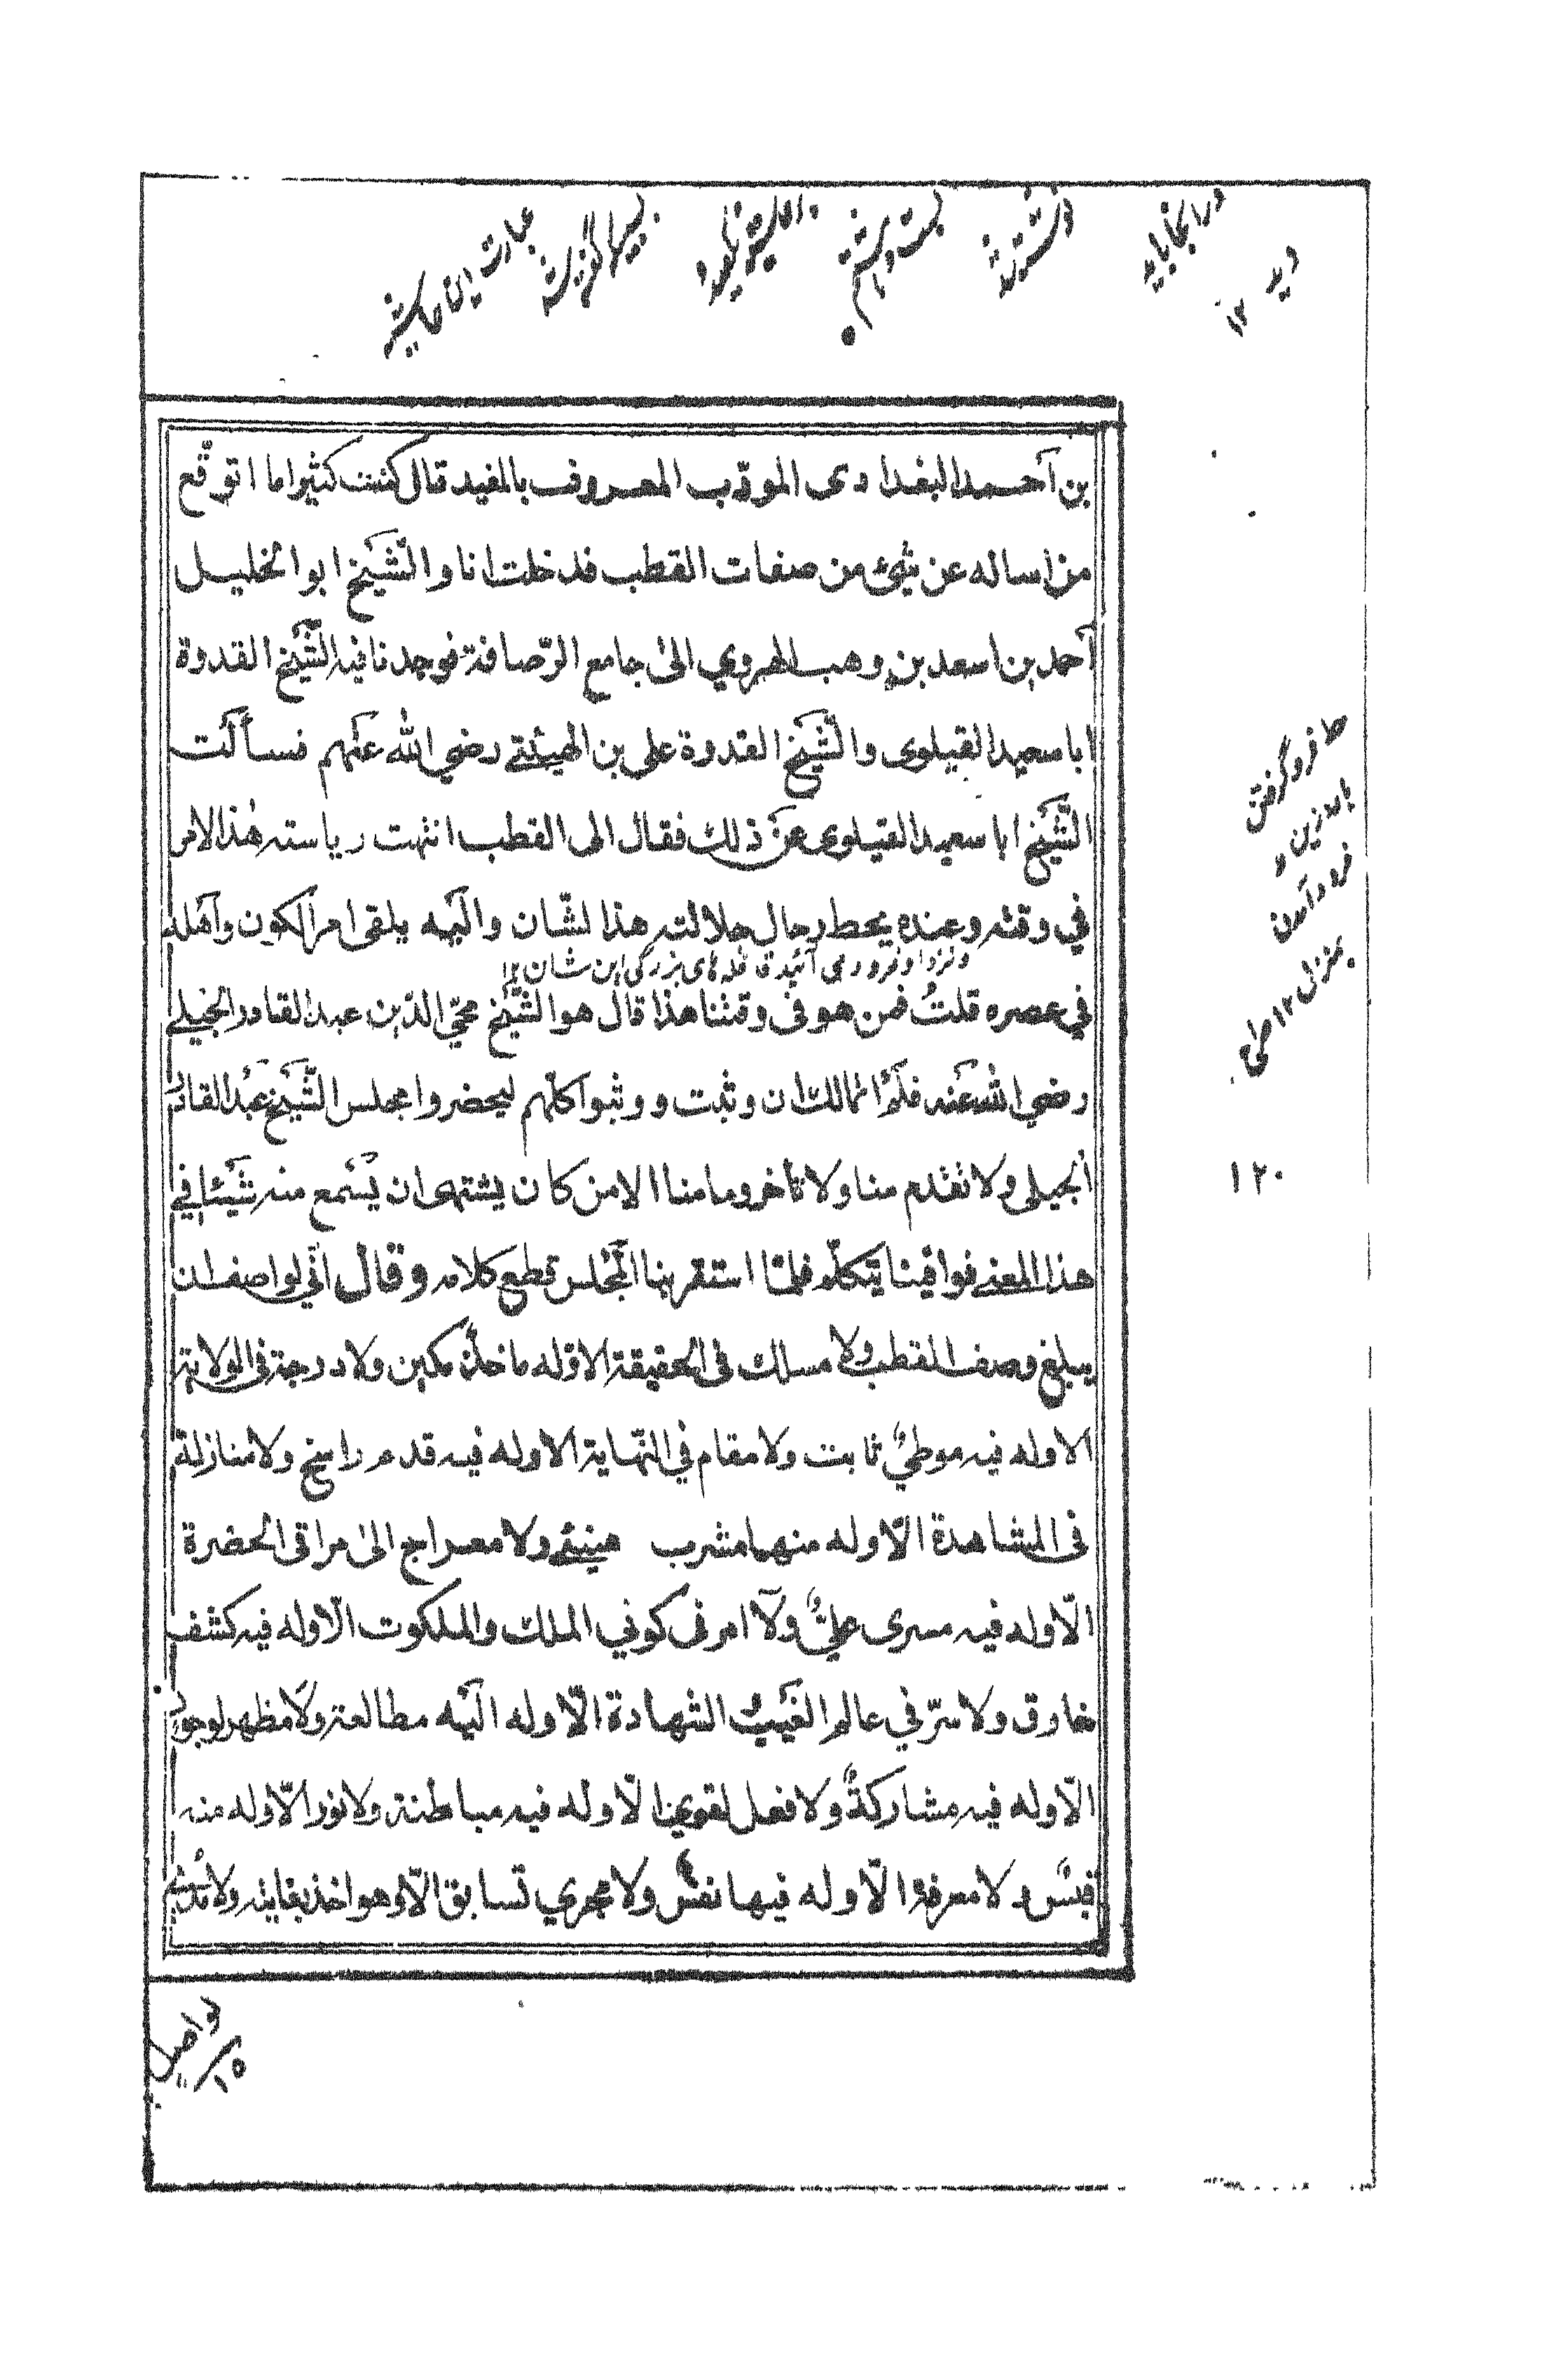 بن أحمد البغدادى المودّب المعروف بالمفيد قال كنت كثيرا ما اتوقّع
من اساله عن شئ من صفات القطب فدخلت انا والشّيخ ابو الخليل
أحمد بن اسعد بن وهب الهروي الى جامع الرّصافة فوجدنا فيه الشّيخ القدوة
ابا سعيد القيلوى والشّيخ القدوة على بن الهيئتے رضي الله عنهم فسألت
الشّيخ ابا سعيد القيلوى عن ذلك فقال الى القطب انتهت رياسته هذا الامر
في وقته وعنده يحط رحال جلالته هذا لشّان واليه يلقى امر الكون وأهله
ونزد او فرود مى آئيد قافله هاى بزرگى اين شان
في عصره قلتُ فمن هو فى وقتنا هذا قال هو الشّيخ محيّ الدّين عبد القادر الجيلے
رضي الله عنه فلم اتمالك ان وثبت و وثبوا كلّهم ليحضروا مجلس الشّيخ عبد القادر
الجيلى ولا تقدم منا ولا تأخر وما منا الا من كان يشتهى ان يسمع منه شيئا في
هذا المعنے فوافينا يتكلّم فلمّا استقر بنا المجلس قطع كلامه وقال انّي لواصف ان
يبلغ وصف القطب ولا مسلك فى الحقيقة الا وله ماخذ مكين ولا درجة فى الولاية
الا وله فيه موطئ ثابت ولا مقام في النّهاية الا وله فيه قدم راسخ ولا منازلة
فى المشاهدة الّا وله منها مشرب هينئے ولا معراج الى مراقى الحضرة
الّا وله فيه مسرى علىٌّ ولا امر فى كوني الملك والملكوت الّا وله فيه كشف
خارق ولا سرّ في عالم الغيب الشهادة الّا وله اليه مطالعة ولا مظهر لوجود
الّا وله فيه مشاركةٌ ولا فعل لقوي الّا وله فيه مباطنة ولا نور الّا وله منه
قبسٌ ولا معرفة الّا وله فيها نفس ولا مجري لسابق الّا وهو اخذ بغايته ولا
ط فرو گرفتن
پا در زين و
فرود آمدن
بمنزل ۱۲
۱۲۰